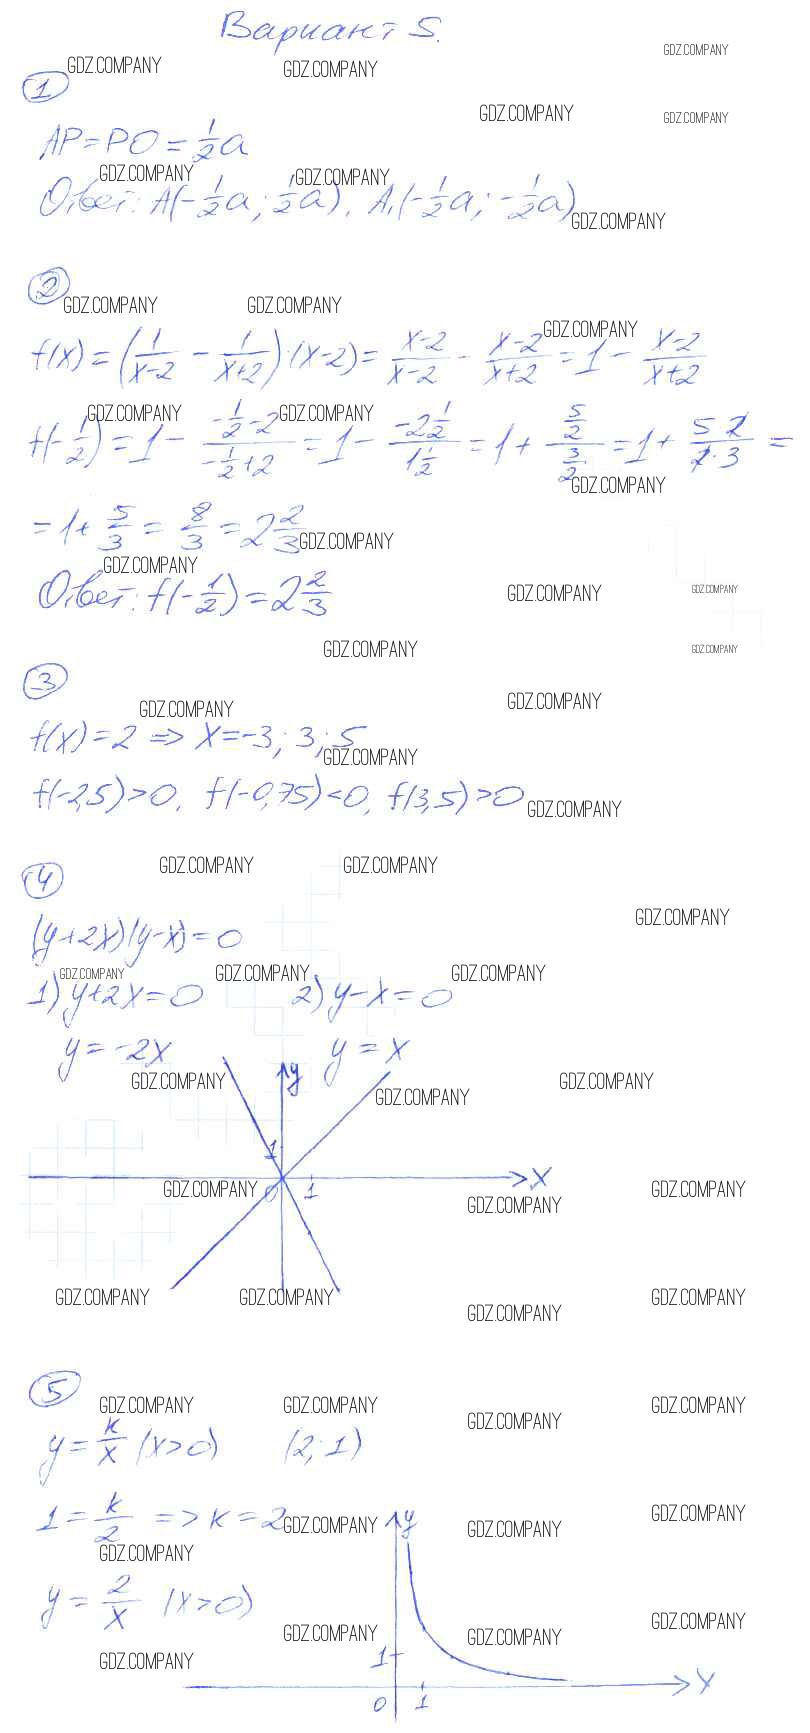 Вариант 5.
GDZ.COMPANY GDZ.COMPANY GDZ.COMPANY
1
GDZ.COMPANY GDZ.COMPANY
AP=PO=1/2a
GDZ.COMPANY GDZ.COMPANY
Ответ: A(-1/2a; 1/2a), A₁(-1/2a; -1/2a)
GDZ.COMPANY
2
GDZ.COMPANY GDZ.COMPANY GDZ.COMPANY
f(x)=(1/(x-2) - 1/(x+2))·(x-2)= (x-2)/(x-2) - (x-2)/(x+2) =1- (x-2)/(x+2)
GDZ.COMPANY GDZ.COMPANY
f(-1/2)=1- (-1/2-2)/(-1/2+2) =1- (-2 1/2)/(1 1/2) =1+ (5/2)/(3/2) =1+ (5·2)/(2·3) =
GDZ.COMPANY
=1+ 5/3 = 8/3 =2 2/3
GDZ.COMPANY
GDZ.COMPANY
Ответ: f(-1/2)=2 2/3
GDZ.COMPANY GDZ.COMPANY
GDZ.COMPANY GDZ.COMPANY
3
GDZ.COMPANY GDZ.COMPANY
f(x)=2 => x=-3; 3; 5
GDZ.COMPANY
f(-2,5)>0, f(-0,75)<0, f(3,5)>0
GDZ.COMPANY
4
GDZ.COMPANY GDZ.COMPANY
GDZ.COMPANY
(y+2x)(y-x)=0
GDZ.COMPANY GDZ.COMPANY GDZ.COMPANY
1) y+2x=0 2) y-x=0
y=-2x y=x
y
GDZ.COMPANY GDZ.COMPANY GDZ.COMPANY
1
x
0 1
GDZ.COMPANY GDZ.COMPANY GDZ.COMPANY
GDZ.COMPANY GDZ.COMPANY GDZ.COMPANY GDZ.COMPANY
5
GDZ.COMPANY GDZ.COMPANY GDZ.COMPANY GDZ.COMPANY
y=k/x (x>0) (2; 1)
1=k/2 => k=2
y
GDZ.COMPANY GDZ.COMPANY GDZ.COMPANY
GDZ.COMPANY
y=2/x (x>0)
GDZ.COMPANY GDZ.COMPANY GDZ.COMPANY
GDZ.COMPANY
1
x
0 1